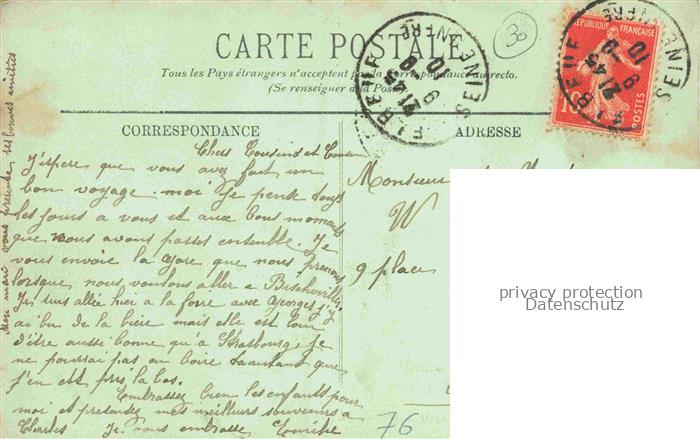 CARTE POSTALE
Tous les Pays étrangers n'acceptent pas la correspondance au recto.
(Se renseigner à la Poste)
CORRESPONDANCE
ADRESSE
Chers Cousins et Cousine
J'espère que vous avez fait un
bon voyage. moi Je pense tous
les jours a vous et aux bons moments
que nous avons passés ensemble. Je
vous envoie la gare que nous prenons
lorsque nous voulons aller a Bischwiller
Je suis allée hier a la foire avec Georges j'y
ai bu de la bière mais elle est loin
d'être aussi bonne qu'a Strasbourg. je
ne pourrai pas en boire autant que
j'en ai pris là bas.
Embrassez bien les enfants pour
moi et présentez mes meilleurs souvenirs a
Charles Je vous embrasse
Mon mari vous présente ses bonnes amitiés
Monsieur
W
9 place
REPUBLIQUE FRANÇAISE
ELBEUF
SEINE INFRE
21 45
9 - 9
10
ELBEUF
SEINE INFRE
21 45
9 - 9
10
30
76
privacy protection
Datenschutz